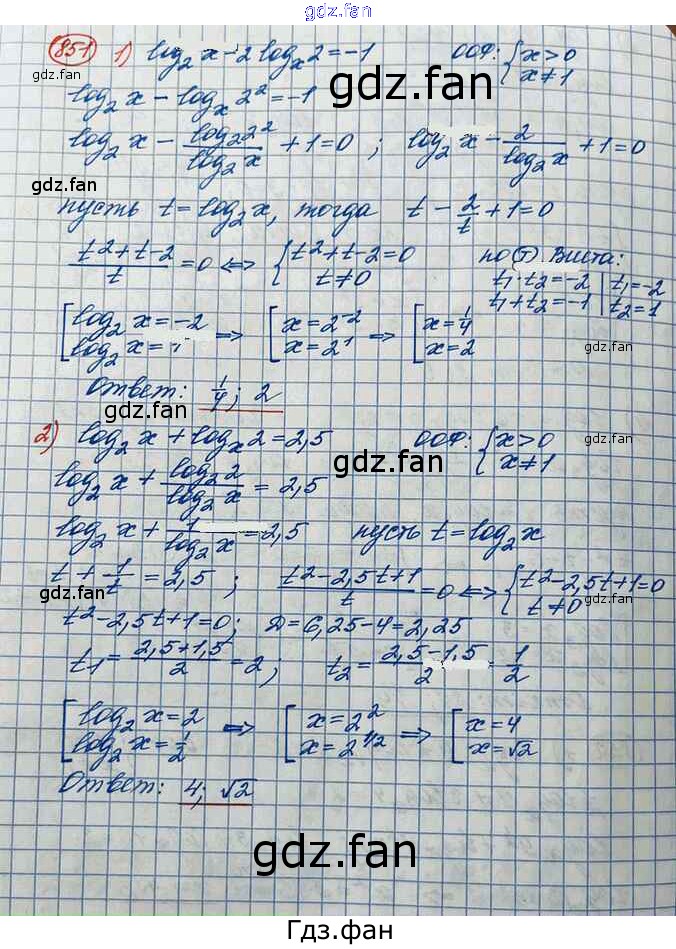 gdz.fan
851 1) log₂x - 2log_x 2 = -1 ООФ: { x>0 x≠1
gdz.fan
log₂x - log_x 2² = -1
gdz.fan
log₂x - log₂2²/log₂x + 1 = 0 ; log₂x - 2/log₂x + 1 = 0
gdz.fan
пусть t = log₂x, тогда t - 2/t + 1 = 0
(t²+t-2)/t = 0 ⇔ { t²+t-2=0 t≠0
по т. Виета:
t₁·t₂=-2 | t₁=-2
t₁+t₂=-1 | t₂=1
[ log₂x=-2 log₂x= ⇒ [ x=2⁻² x=2¹ ⇒ [ x=1/4 x=2
gdz.fan
Ответ: 1/4; 2
gdz.fan
2) log₂x + log_x 2 = 2,5 ООФ: { x>0 x≠1
gdz.fan
log₂x + log₂2/log₂x = 2,5
log₂x + 1/log₂x = 2,5 пусть t = log₂x
t + 1/t = 2,5 ; (t²-2,5t+1)/t = 0 ⇔ { t²-2,5t+1=0 t≠0
gdz.fan
gdz.fan
t²-2,5t+1=0; Д=6,25-4=2,25
t₁ = (2,5+1,5)/2 = 2; t₂ = (2,5-1,5)/2 = 1/2
[ log₂x=2 log₂x=1/2 ⇒ [ x=2² x=2^1/2 ⇒ [ x=4 x=√2
Ответ: 4; √2
gdz.fan
gdz.fan
Гдз.фан